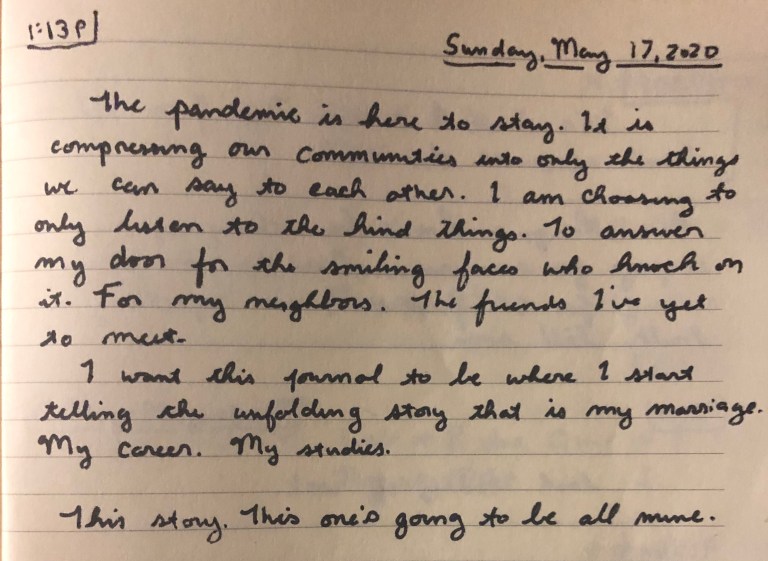 1:13P
Sunday, May 17, 2020
The pandemic is here to stay. It is
compressing our communities into only the things
we can say to each other. I am choosing to
only listen to the kind things. To answer
my door for the smiling faces who knock on
it. For my neighbors. The friends I've yet
to meet.
I want this journal to be where I start
telling the unfolding story that is my marriage.
My career. My studies.
This story. This one's going to be all mine.